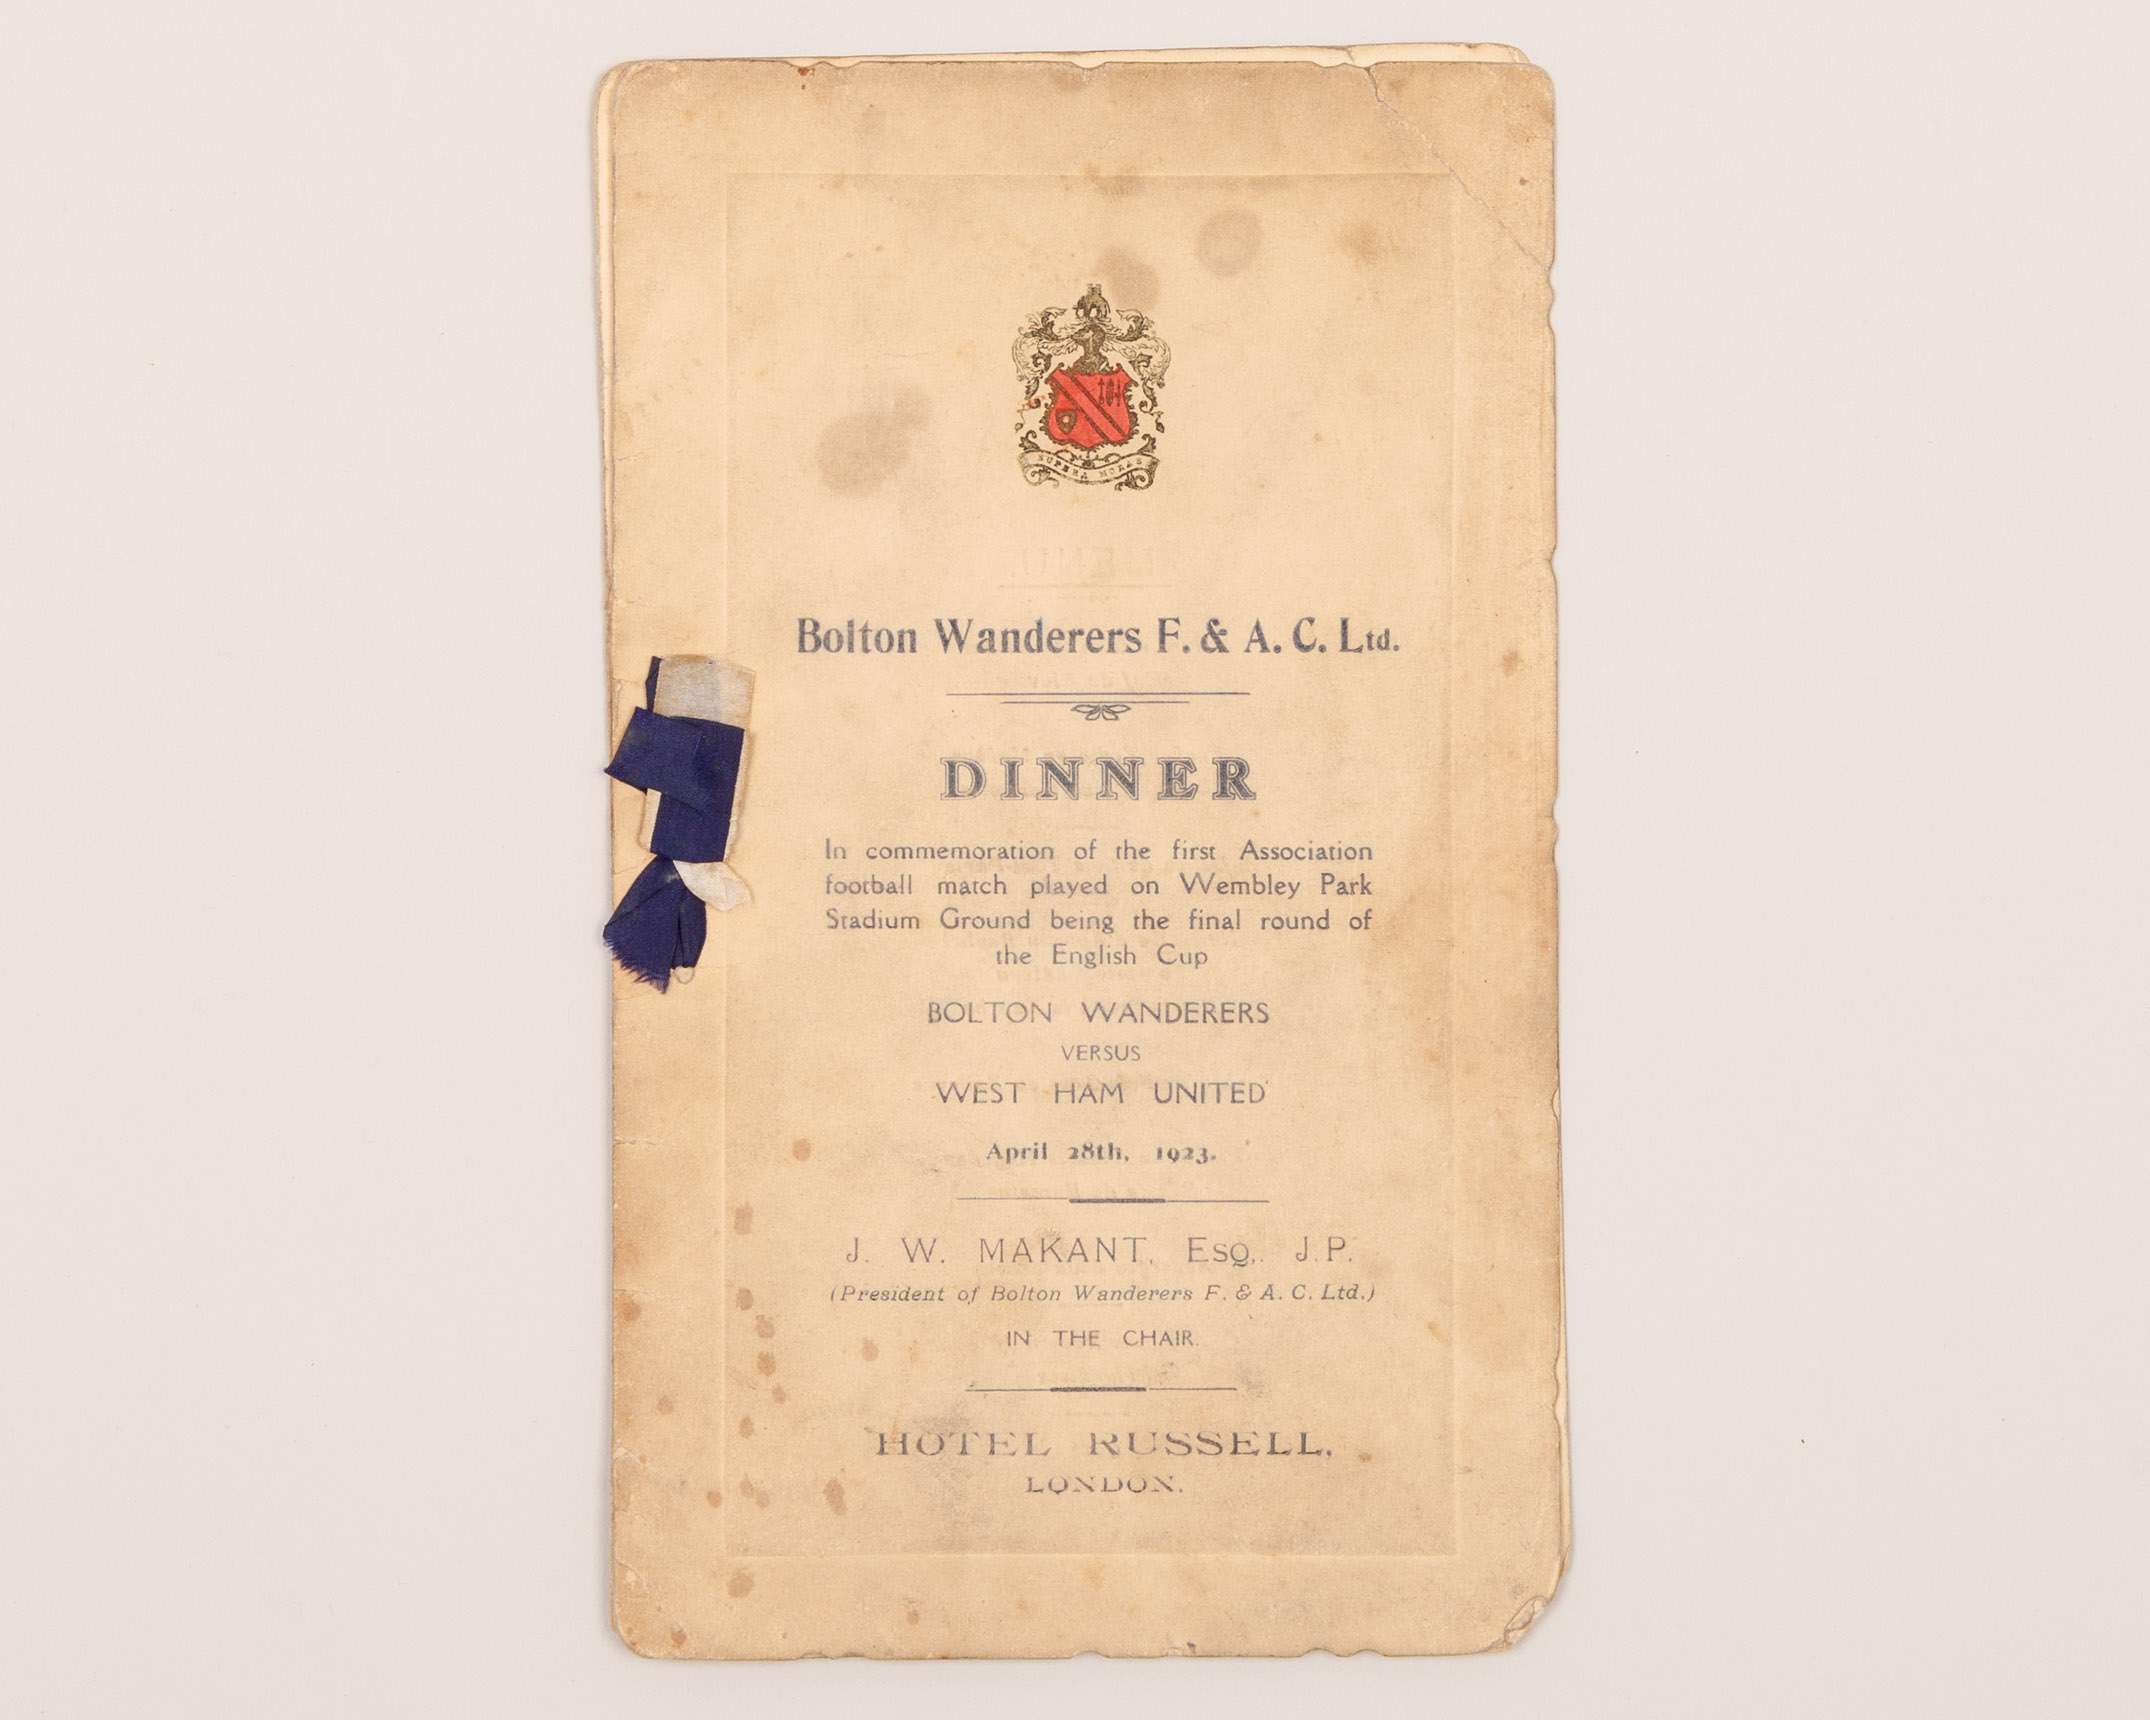 SUPERA MORAS
Bolton Wanderers F. & A. C. Ltd.
DINNER
In commemoration of the first Association
football match played on Wembley Park
Stadium Ground being the final round of
the English Cup
BOLTON WANDERERS
VERSUS
WEST HAM UNITED
April 28th, 1923.
J. W. MAKANT, Esq., J.P.
(President of Bolton Wanderers F. & A. C. Ltd.)
IN THE CHAIR.
HOTEL RUSSELL,
LONDON.